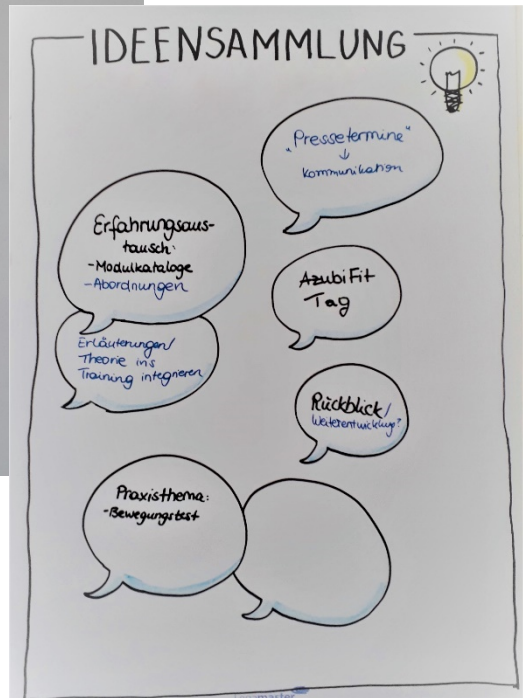 IDEENSAMMLUNG
„Pressetermine"
↓
Kommunikation
Erfahrungsaus-
tausch:
-Modulkataloge
-Abordnungen
AzubiFit
Tag
Erläuterungen/
Theorie ins
Training integrieren
Rückblick/
Weiterentwicklung?
Praxisthema:
-Bewegungstest